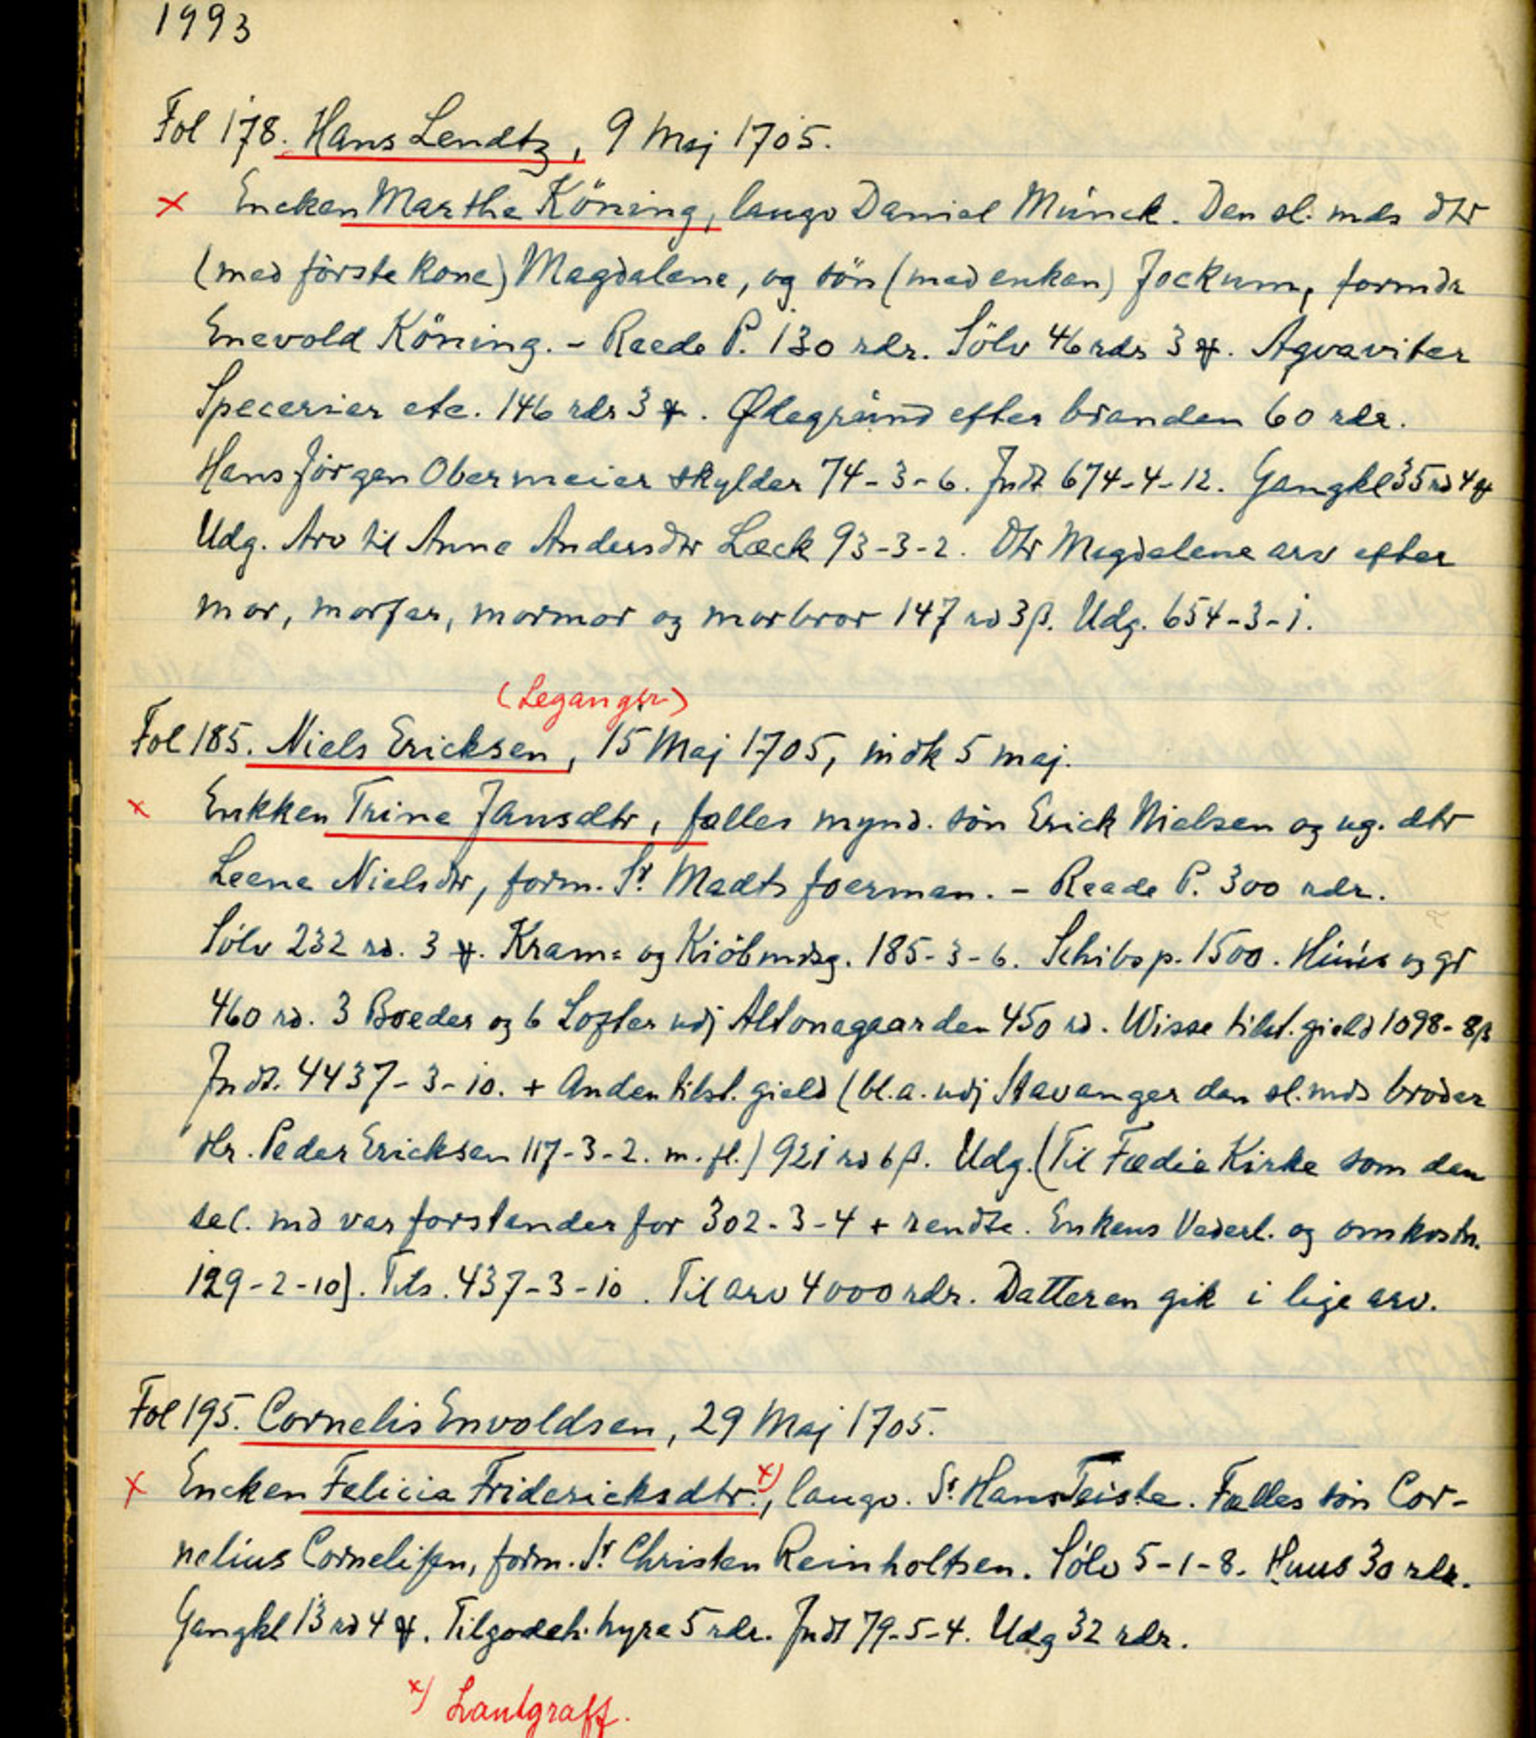 1993
Fol 178. Hans Lendtz, 9 Maj 1705.
x Encken Marthe Köning, laugv Daniel Münck. Den sl. mds dtr
(med förste kone) Magdalene, og sön (med enken) Jockum, formdr
Enevold Köning. - Reede P. 130 rdr. Sölv 46 rdr 3 ꝟ. Aqvaviter
Specerier etc. 146 rdr 3 ꝟ. Ødegrund efter branden 60 rdr.
Hans Jörgen Obermeier skylder 74-3-6. Jndt 674-4-12. Gangkl 35 rd 4 ꝟ
Udg. Arv til Anne Andersdtr Læck 93-3-2. Dtr Magdalene arv efter
mor, morfar, mormor og morbror 147 rd 3 β. Udg. 654-3-1.
(Leganger)
Fol 185. Niels Ericksen, 15 Maj 1705, indk 5 maj.
x Enkken Trine Jansdtr, fælles mynd. sön Erick Nielsen og ug. dtr
Leene Nielsdtr, form. Sr. Madts foerman. - Reede P. 300 rdr.
Sölv 232 rd. 3 ꝟ. Kram= og Kiöbmdsg. 185-3-6. Schibsp. 1500. Huus og gr
460 rd. 3 Boeder og 6 Lofter udj Altonagaarden 450 rd. Wisse tilst. gield 1098-8β
Jndt. 4437-3-10. + Anden tilst. gield (bl.a. udj Stavanger den sl. mds broder
Hr. Peder Ericksen 117-3-2. m.fl.) 921 rd 6 β. Udg. (Til Fædie Kirke som den
sal. md var forstander for 302-3-4 + rendte. Enkens Vederl. og omkostn.
129-2-10). Tils. 437-3-10. Til arv 4000 rdr. Datteren gik i lige arv.
Fol 195. Cornelis Envoldsen, 29 Maj 1705.
x Encken Felicia Fridericksdtr. x), laugv. Sr. Hans Teiste. Fælles sön Cor-
nelius Cornelißen, form. Sr Christen Reinholtsen. Sölv 5-1-8. Huus 30 rdr.
Gangkl 13 rd 4 ꝟ. Tilgodeh. hyre 5 rdr. Jndt 79-5-4. Udg 32 rdr.
x) Lantgraff.